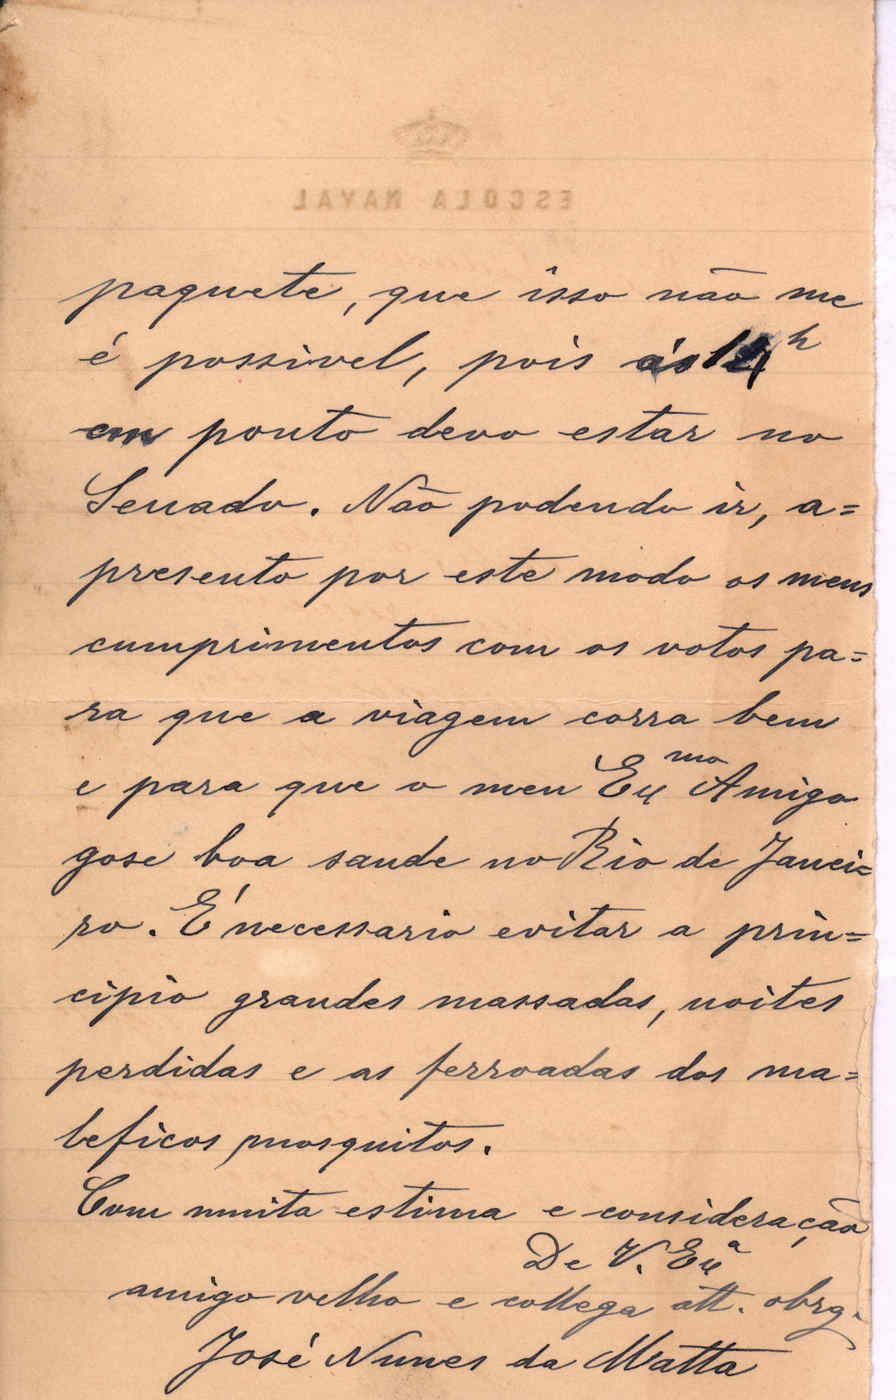 ESCOLA NAVAL
paquete, que isso não me
é possivel, pois ás 14h
em ponto devo estar no
Senado. Não podendo ir, a=
presento por este modo os meus
cumprimentos com os votos pa=
ra que a viagem corra bem
e para que o meu Exmo Amigo
gose boa saude no Rio de Janei=
ro. É necessario evitar a prin=
cipio grandes massadas, noites
perdidas e as ferroadas dos ma=
leficos mosquitos.
Com muita estima e consideração
De V. Exa
amigo velho e collega att. obrg.
José Nunes da Matta